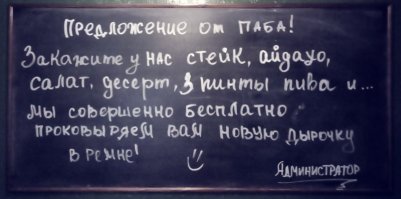 Предложение от паба!
Закажите у нас стейк, айдахо,
салат, десерт, 3 пинты пива и...
мы совершенно бесплатно
проковыряем вам новую дырочку
в ремне!
Администратор